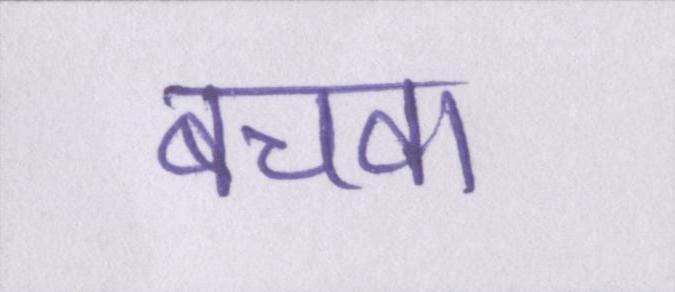 बचका